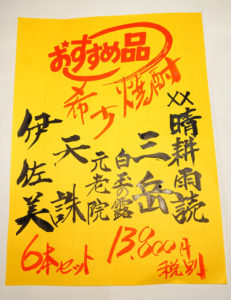 おすすめ品
希少焼酎
××晴耕雨読
三岳
白玉の露
元老院
天誅
伊佐美
6本セット 13,800円
税別